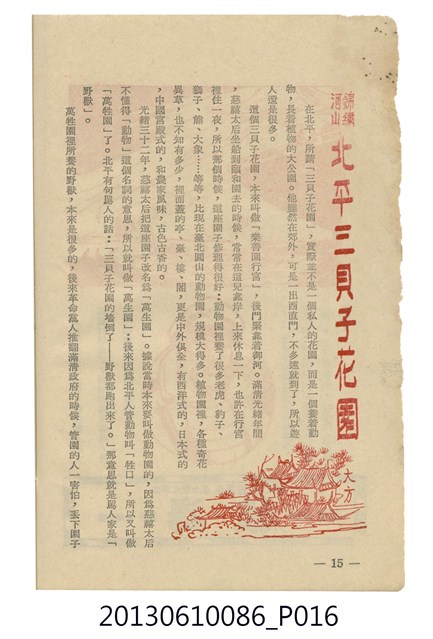 錦繡河山
北平三貝子花園
大方
在北平，所謂「三貝子花園」，實際並不是一個私人的花園，而是一個養着動
物，長着植物的大公園。他雖然在郊外，可是一出西直門，不多遠就到了，所以遊
人還是很多。
這個三貝子花園，本來叫做「樂善園行宮」，後門緊靠着御河。滿清光緒年間
，慈禧太后坐船到頤和園去的時候，常常在這兒靠岸，上來休息一下，也許在行宮
裡住一夜，所以那個時候，這座園子修理得很好：動物園裡養了很多老虎、豹子、
獅子、熊、大象……等等，比現在臺北圓山的動物園，規模大得多。植物園裡，各種奇花
異草，也不知有多少，裡面蓋的亭、臺、樓、閣，更是中外俱全，有西洋式的，日本式的
，中國宮殿式的，和農家風味，古色古香的。
光緒三十二年，慈禧太后把這座園子改名爲「萬生園」。據說當時本來要叫做動物園的，因爲慈禧太后
不懂得「動物」這個名詞的意思，所以就叫做「萬生園」：後來因爲北平人管動物叫「牲口」，所以又叫做
「萬牲園」了。北平有句罵人的話：「三貝子花園的墻倒了——野獸都跑出來了。」那意思就是罵人家是「
野獸」。
萬牲園裡所養的野獸，本來是很多的，後來革命黨人推翻滿清政府的時候，管園的人一害怕，丢下園子
— 15 —
20130610086_P016